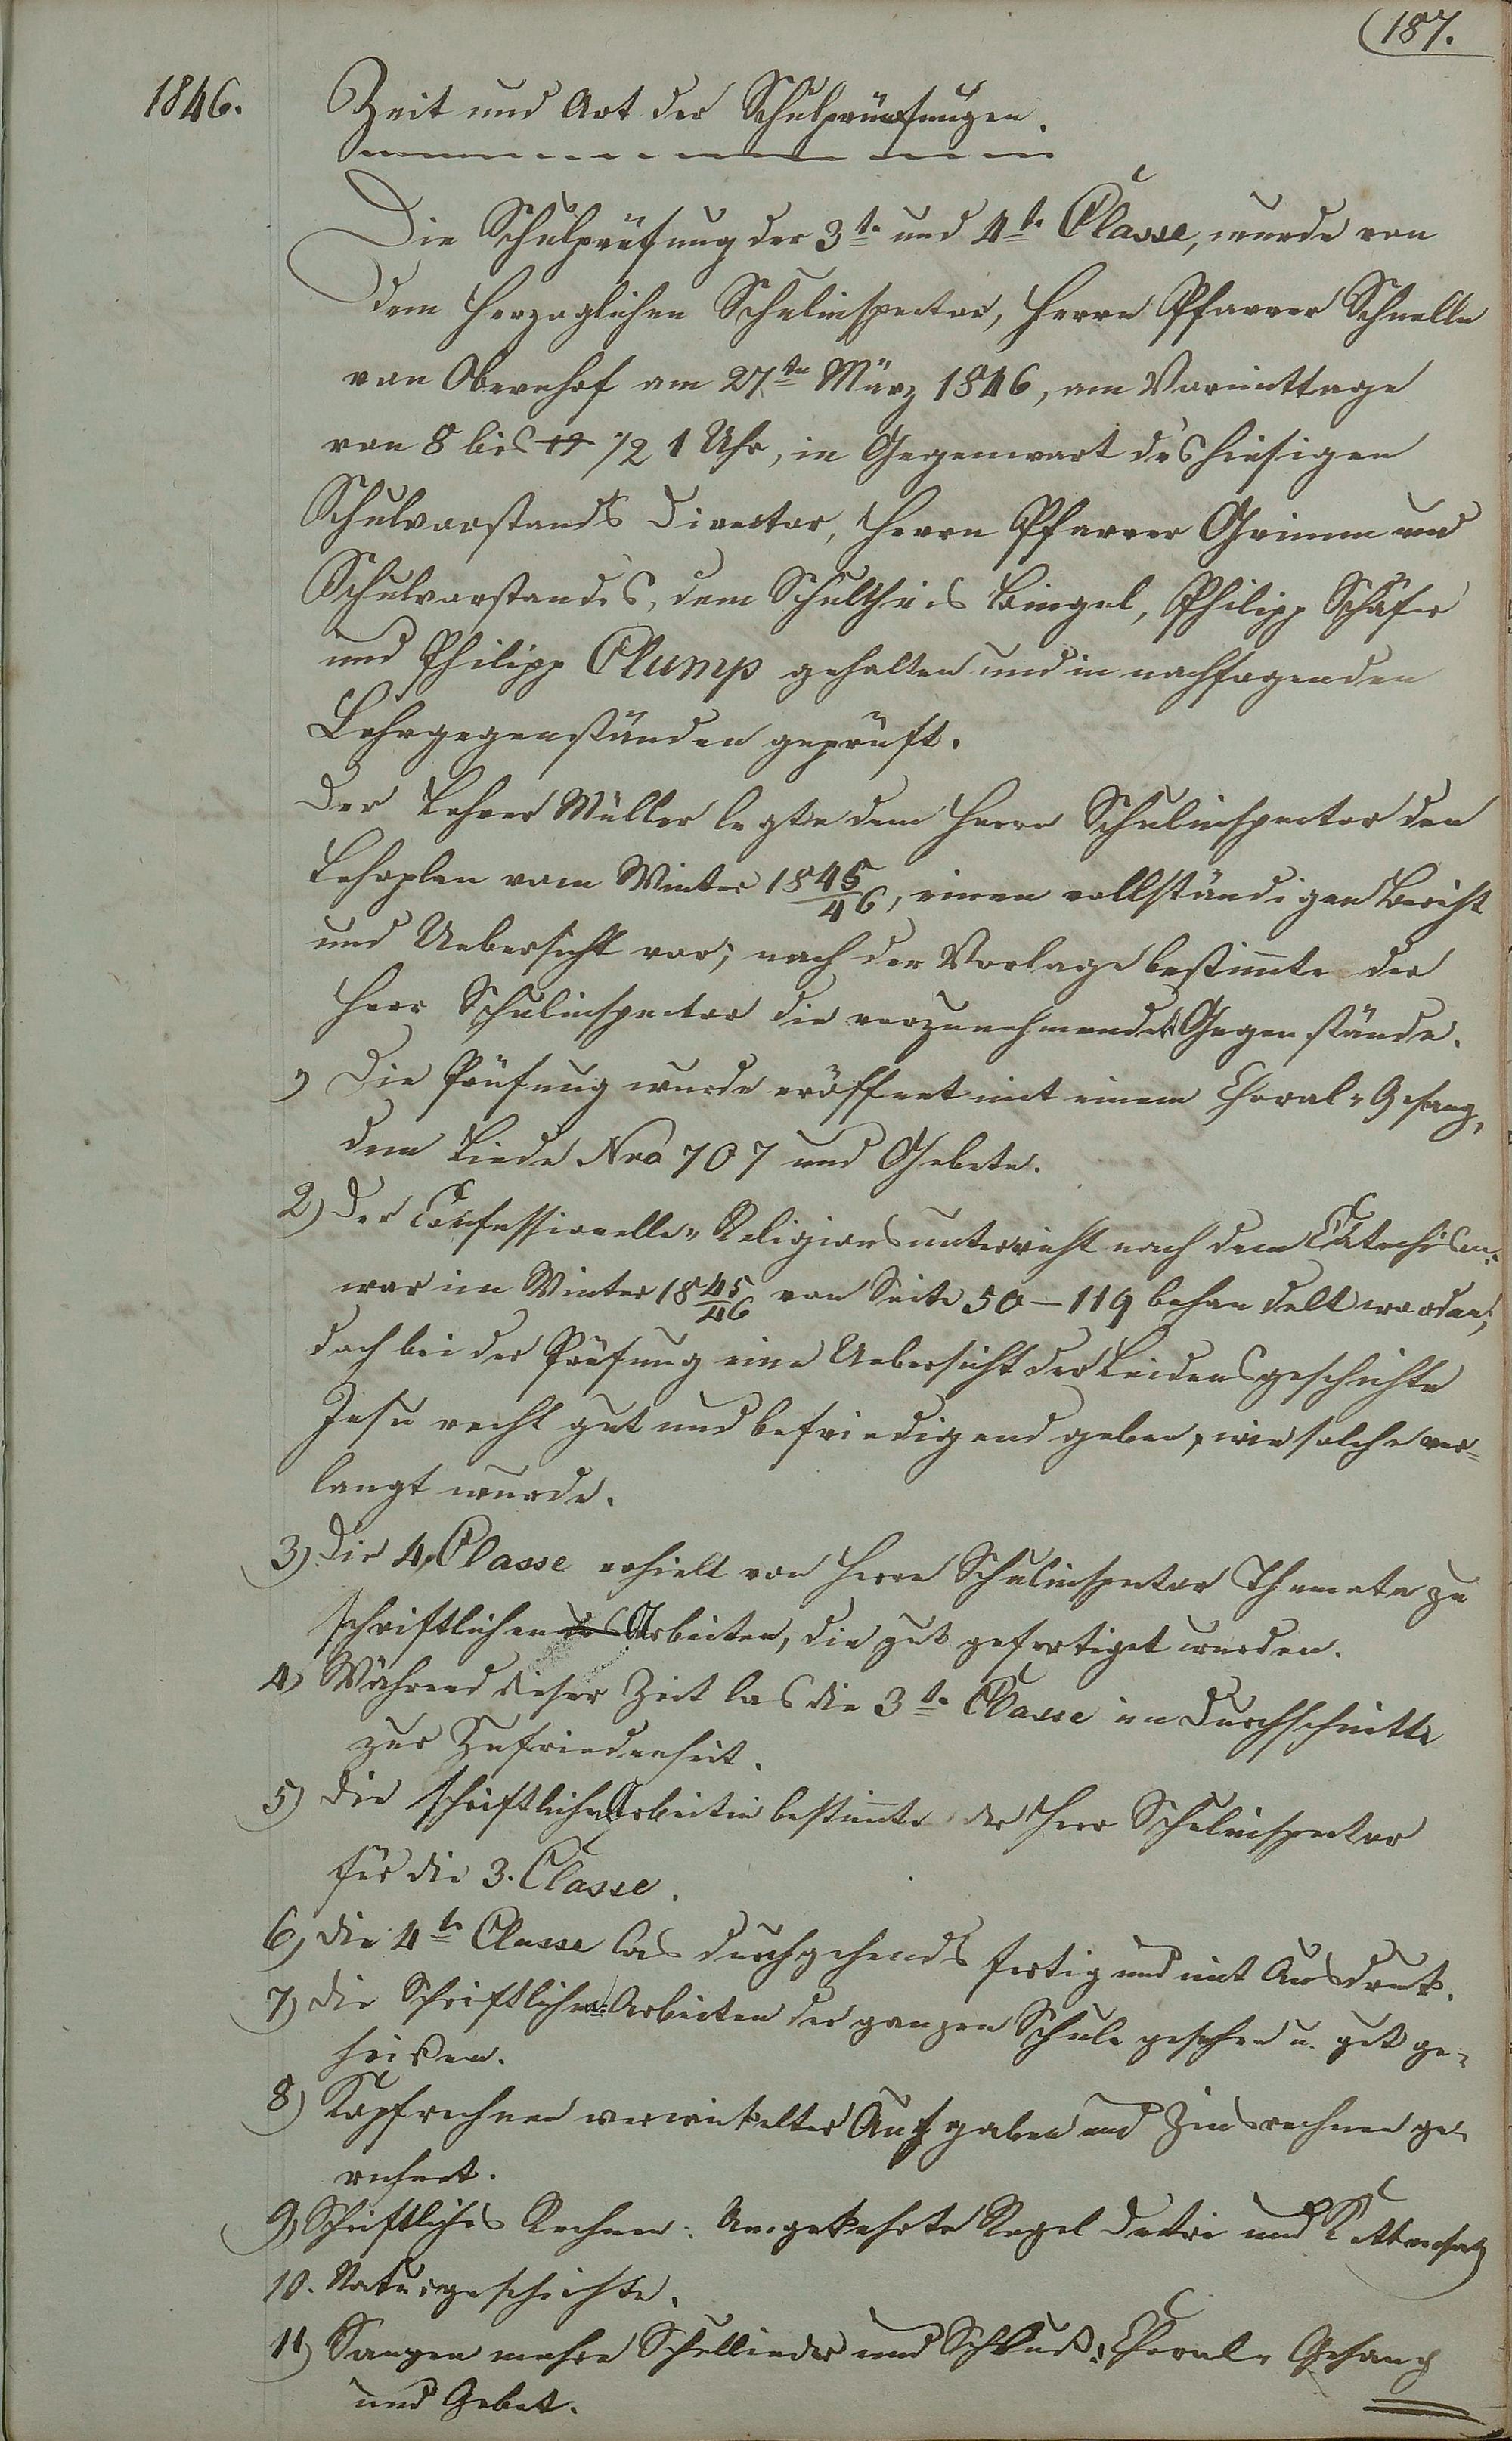 187.
1846.
Zeit und Art der Schulprüfungen.
Die Schulprüfung der 3te und 4te Classe, wurde von
dem Herzoglichen Schulinspector, Herrn Pfarrer Schnelle
von Obernhof am 27ten März 1846, am Vormittage
von 8 bis 12 1/2 1 Uhr, in Gegenwart des hiesigen
Schulvorstands Director, Herrn Pfarrer Grimm und
Schulvorstandes, dem Schultheis Bingel, Philipp Schäfer
und Philipp Clump gehalten und in nachfogenden
Lehrgegenständen geprüft.
Der Lehrer Müller legte dem Herrn Schulinspector den
Lehrplan vom Winter 1845/46, einen vollständigen Bericht
und Uebersicht vor; nach der Vorlage bestimmte der
Herr Schulinspector die vorzunehmende Gegenstände.
1) Die Prüfung wurde eröffnet mit einem Choral-Gesang,
dem Liede Nro 707 und Gebete.
2) Der Confessionelle-Religionsunterricht nach dem Catechism:
war im Winter 1845/46 von Seite 50-119 behandelt worden;
doch bei der Prüfung eine Uebersicht der Leidensgeschichte
Jesu recht gut und befriedigend geben, wie solche ver=
langt wurde.
3) Die 4. Classe erhielt von Herrn Schulinspector Themata zu
schriftlichen Arbeiten, die gut gefertiget wurden.
4) Während dieser Zeit las die 3te Classe im Durchschnitte
zur Zufriedenheit.
5) Die schriftlichen Arbeiten bestimmte der Herr Schulinspector
für die 3. Classe.
6) Die 4te Classe las durchgehends fertig und mit Ausdruck.
7) Die Schriftlichen-Arbeiten der ganzen Schule gesehen u. gut ge=
heißen.
8) Kopfrechnen verwickelter Aufgaben und Zinsrechnen ge=
rechnet.
9) Schriftliches Rechnen: Umgekehrte Regel Detri und Kettensatz
10. Naturgeschichte.
11) Sangen mehre Schullieder und Schluß: Choral-Gesang
und Gebet.